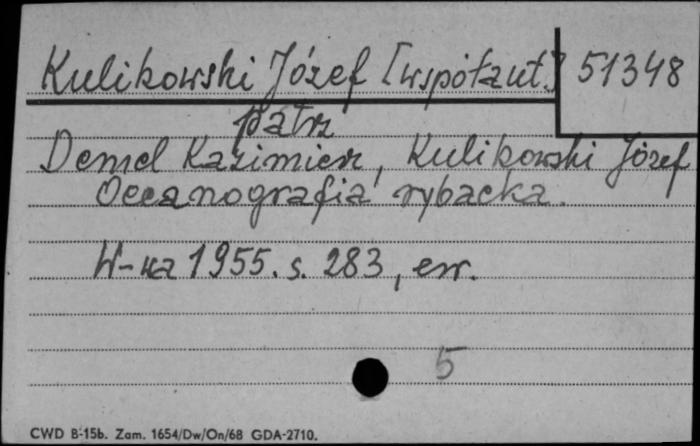 Kulikowski Józef [współaut.] 51348
patrz
Demel Kazimierz, Kulikowski Józef
Oceanografia rybacka.
W-wa 1955. s. 283, err.
5
CWD B-15b. Zam. 1654/Dw/On/68 GDA-2710.